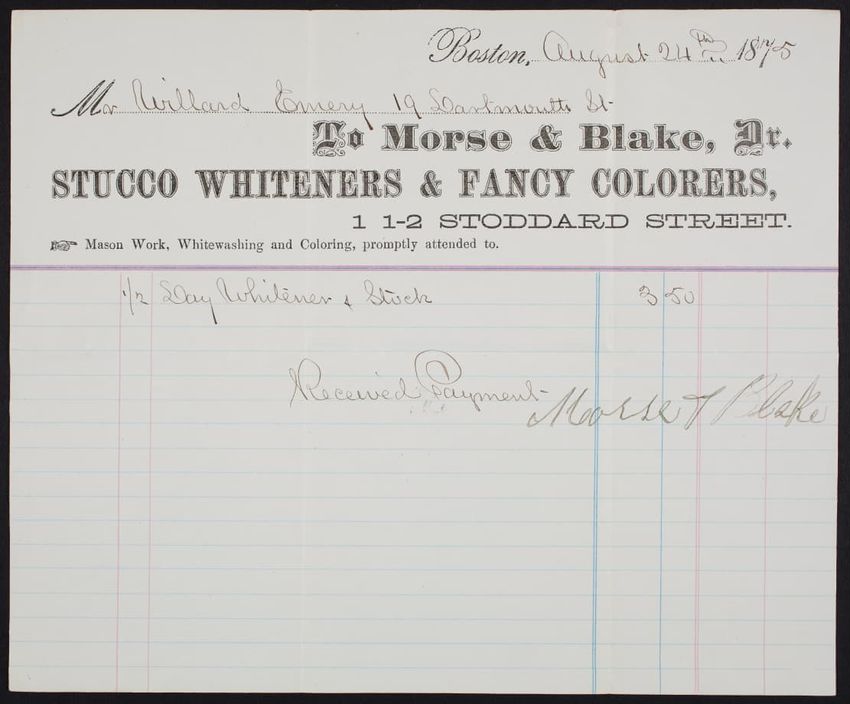 Boston, August 24th 1875
Mr Willard Emery 19 Dartmouth St.
To Morse & Blake, Dr.
STUCCO WHITENERS & FANCY COLORERS,
1 1-2 STODDARD STREET.
☞ Mason Work, Whitewashing and Coloring, promptly attended to.
1/2 Day Whitener & Stock 3 50
Received Payment
Morse & Blake